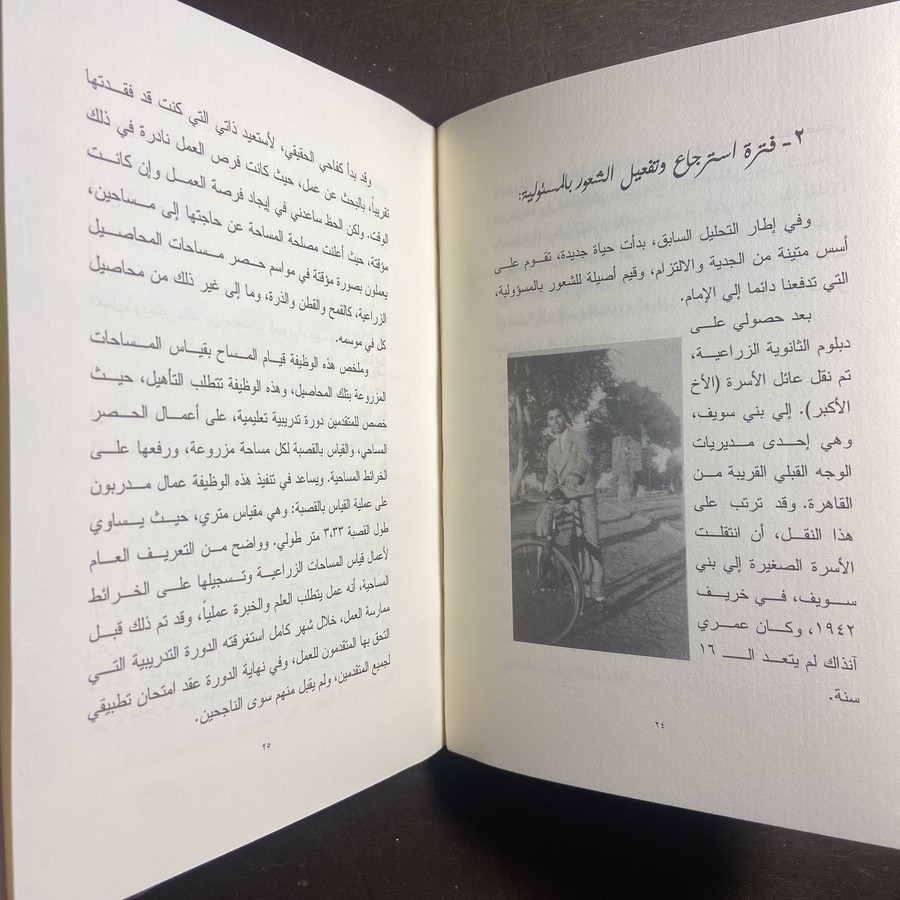 ٢ - فترة استرجاع وتفعيل الشعور بالمسئولية:
وفي إطار التحليل السابق، بدأت حياة جديدة، تقوم على
أسس متينة من الجدية والالتزام، وقيم أصيلة للشعور بالمسؤولية،
التي تدفعنا دائما إلي الإمام.
بعد حصولي على
دبلوم الثانوية الزراعية،
تم نقل عائل الأسرة (الأخ
الأكبر). إلي بني سويف،
وهي إحدى مديريات
الوجه القبلي القريبة من
القاهرة. وقد ترتب على
هذا النقل، أن انتقلت
الأسرة الصغيرة إلي بني
سويف، في خريف
١٩٤٢، وكان عمري
آنذاك لم يتعد الـ ١٦
سنة.
٢٤
وقد بدأ كفاحي الحقيقي، لأستعيد ذاتي التي كنت قد فقدتها
تقريباً، بالبحث عن عمل، حيث كانت فرص العمل نادرة في ذلك
الوقت. ولكن الحظ ساعدني في إيجاد فرصة العمل وإن كانت
مؤقتة، حيث أعلنت مصلحة المساحة عن حاجتها إلى مساحين،
يعملون بصورة مؤقتة في مواسم حصر مساحات المحاصيل
الزراعية، كالقمح والقطن والذرة، وما إلى غير ذلك من محاصيل
كل في موسمه.
وملخص هذه الوظيفة قيام المساح بقياس المساحات
المزروعة بتلك المحاصيل، وهذه الوظيفة تتطلب التأهيل، حيث
خصص للمتقدمين دورة تدريبية تعليمية، على أعمال الحصر
المساحي، والقياس بالقصبة لكل مساحة مزروعة، ورفعها على
الخرائط المساحية. ويساعد في تنفيذ هذه الوظيفة عمال مدربون
على عملية القياس بالقصبة: وهي مقياس متري، حيث يساوي
طول القصبة ٣،٣٣ متر طولي. وواضح من التعريف العام
لأعمال قياس المساحات الزراعية وتسجيلها على الخرائط
المساحية، أنه عمل يتطلب العلم والخبرة عملياً، وقد تم ذلك قبل
ممارسة العمل، خلال شهر كامل استغرقته الدورة التدريبية التي
التحق بها المتقدمون للعمل، وفي نهاية الدورة عقد امتحان تطبيقي
لجميع المتقدمين، ولم يقبل منهم سوى الناجحين.
٢٥